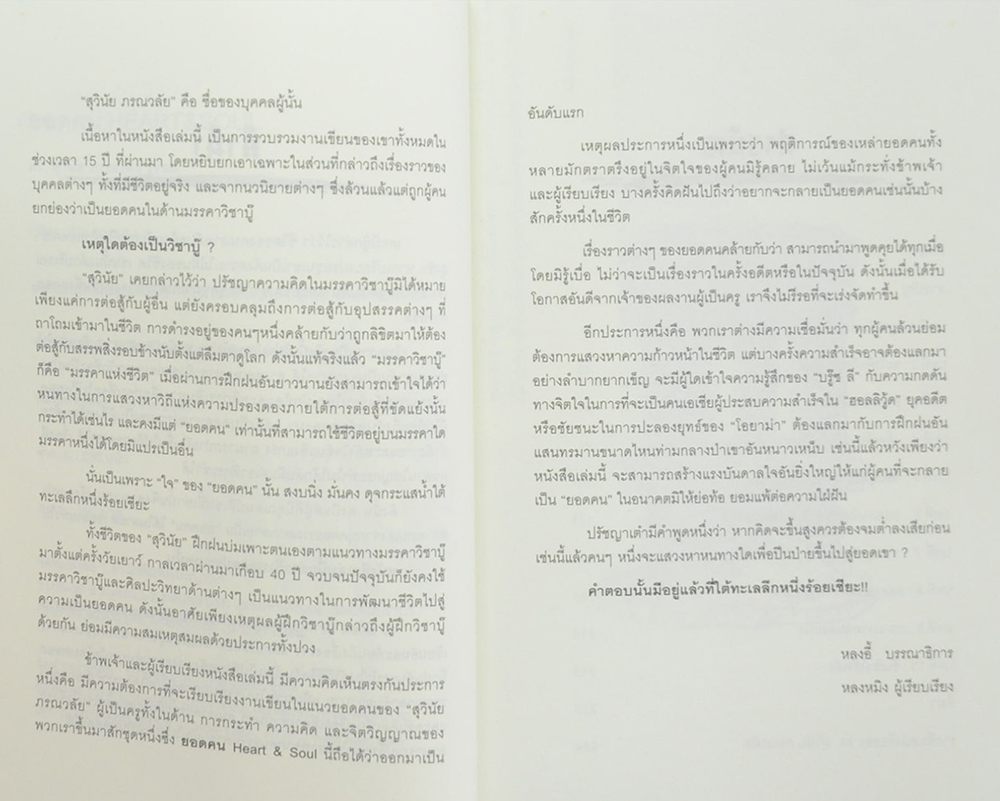 "สุวินัย ภรณวลัย" คือ ชื่อของบุคคลผู้นั้น
เนื้อหาในหนังสือเล่มนี้ เป็นการรวบรวมงานเขียนของเขาทั้งหมดใน
ช่วงเวลา 15 ปี ที่ผ่านมา โดยหยิบยกเอาเฉพาะในส่วนที่กล่าวถึงเรื่องราวของ
บุคคลต่างๆ ทั้งที่มีชีวิตอยู่จริง และจากนวนิยายต่างๆ ซึ่งล้วนแล้วแต่ถูกผู้คน
ยกย่องว่าเป็นยอดคนในด้านมรรคาวิชาบู๊
เหตุใดต้องเป็นวิชาบู๊ ?
"สุวินัย" เคยกล่าวไว้ว่า ปรัชญาความคิดในมรรคาวิชาบู๊มิได้หมาย
เพียงแค่การต่อสู้กับผู้อื่น แต่ยังครอบคลุมถึงการต่อสู้กับอุปสรรคต่างๆ ที่
ถาโถมเข้ามาในชีวิต การดำรงอยู่ของคนๆหนึ่งคล้ายกับว่าถูกลิขิตมาให้ต้อง
ต่อสู้กับสรรพสิ่งรอบข้างนับตั้งแต่ลืมตาดูโลก ดังนั้นแท้จริงแล้ว "มรรคาวิชาบู๊"
ก็คือ "มรรคาแห่งชีวิต" เมื่อผ่านการฝึกฝนอันยาวนานยังสามารถเข้าใจได้ว่า
หนทางในการแสวงหาวิถีแห่งความปรองดองภายใต้การต่อสู้ที่ขัดแย้งนั้น
กระทำได้เช่นไร และคงมีแต่ "ยอดคน" เท่านั้นที่สามารถใช้ชีวิตอยู่บนมรรคาใด
มรรคาหนึ่งได้โดยมิแปรเป็นอื่น
นั่นเป็นเพราะ "ใจ" ของ "ยอดคน" นั้น สงบนิ่ง มั่นคง ดุจกระแสน้ำใต้
ทะเลลึกหนึ่งร้อยเชียะ
ทั้งชีวิตของ "สุวินัย" ฝึกฝนบ่มเพาะตนเองตามแนวทางมรรคาวิชาบู๊
มาตั้งแต่ครั้งวัยเยาว์ กาลเวลาผ่านมาเกือบ 40 ปี จวบจนปัจจุบันก็ยังคงใช้
มรรคาวิชาบู๊และศิลปะวิทยาด้านต่างๆ เป็นแนวทางในการพัฒนาชีวิตไปสู่
ความเป็นยอดคน ดังนั้นอาศัยเพียงเหตุผลผู้ฝึกวิชาบู๊กล่าวถึงผู้ฝึกวิชาบู๊
ด้วยกัน ย่อมมีความสมเหตุสมผลด้วยประการทั้งปวง
ข้าพเจ้าและผู้เรียบเรียงหนังสือเล่มนี้ มีความคิดเห็นตรงกันประการ
หนึ่งคือ มีความต้องการที่จะเรียบเรียงงานเขียนในแนวยอดคนของ "สุวินัย
ภรณวลัย" ผู้เป็นครูทั้งในด้าน การกระทำ ความคิด และจิตวิญญาณของ
พวกเราขึ้นมาสักชุดหนึ่งซึ่ง ยอดคน Heart & Soul นี้ถือได้ว่าออกมาเป็น
อันดับแรก
เหตุผลประการหนึ่งเป็นเพราะว่า พฤติการณ์ของเหล่ายอดคนทั้ง
หลายมักตราตรึงอยู่ในจิตใจของผู้คนมิรู้คลาย ไม่เว้นแม้กระทั่งข้าพเจ้า
และผู้เรียบเรียง บางครั้งคิดฝันไปถึงว่าอยากจะกลายเป็นยอดคนเช่นนั้นบ้าง
สักครั้งหนึ่งในชีวิต
เรื่องราวต่างๆ ของยอดคนคล้ายกับว่า สามารถนำมาพูดคุยได้ทุกเมื่อ
โดยมิรู้เบื่อ ไม่ว่าจะเป็นเรื่องราวในครั้งอดีตหรือในปัจจุบัน ดังนั้นเมื่อได้รับ
โอกาสอันดีจากเจ้าของผลงานผู้เป็นครู เราจึงไม่รีรอที่จะเร่งจัดทำขึ้น
อีกประการหนึ่งคือ พวกเราต่างมีความเชื่อมั่นว่า ทุกผู้คนล้วนย่อม
ต้องการแสวงหาความก้าวหน้าในชีวิต แต่บางครั้งความสำเร็จอาจต้องแลกมา
อย่างลำบากยากเข็ญ จะมีผู้ใดเข้าใจความรู้สึกของ "บรู๊ซ ลี" กับความกดดัน
ทางจิตใจในการที่จะเป็นคนเอเชียผู้ประสบความสำเร็จใน "ฮอลลิวู้ด" ยุคอดีต
หรือชัยชนะในการประลองยุทธของ "โอยาม่า" ต้องแลกมากับการฝึกฝนอัน
แสนทรมานขนาดไหนท่ามกลางป่าเขาอันหนาวเหน็บ เช่นนี้แล้วหวังเพียงว่า
หนังสือเล่มนี้ จะสามารถสร้างแรงบันดาลใจอันยิ่งใหญ่ให้แก่ผู้คนที่จะกลาย
เป็น "ยอดคน" ในอนาคตมิให้ย่อท้อ ยอมแพ้ต่อความใฝ่ฝัน
ปรัชญาเต๋ามีคำพูดหนึ่งว่า หากคิดจะขึ้นสูงควรต้องจมต่ำลงเสียก่อน
เช่นนี้แล้วคนๆ หนึ่งจะแสวงหาหนทางใดเพื่อปีนป่ายขึ้นไปสู่ยอดเขา ?
คำตอบนั้นมีอยู่แล้วที่ใต้ทะเลลึกหนึ่งร้อยเชียะ!!
หลงอี้ บรรณาธิการ
หลงหมิง ผู้เรียบเรียง